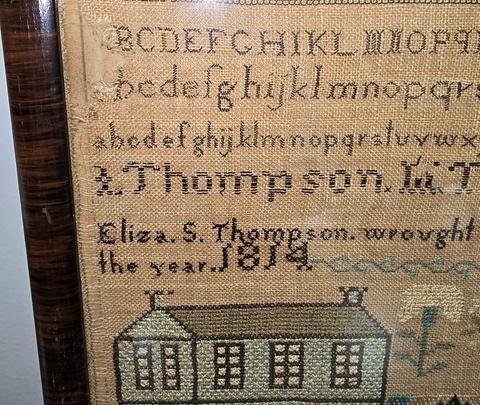 BCDEFGHIKLMNOPQ
bcdefghijklmnopqrs
abcdefghijklmnopqrstuvwx
Thompson.
Eliza. S. Thompson. wrought
the year. 1814